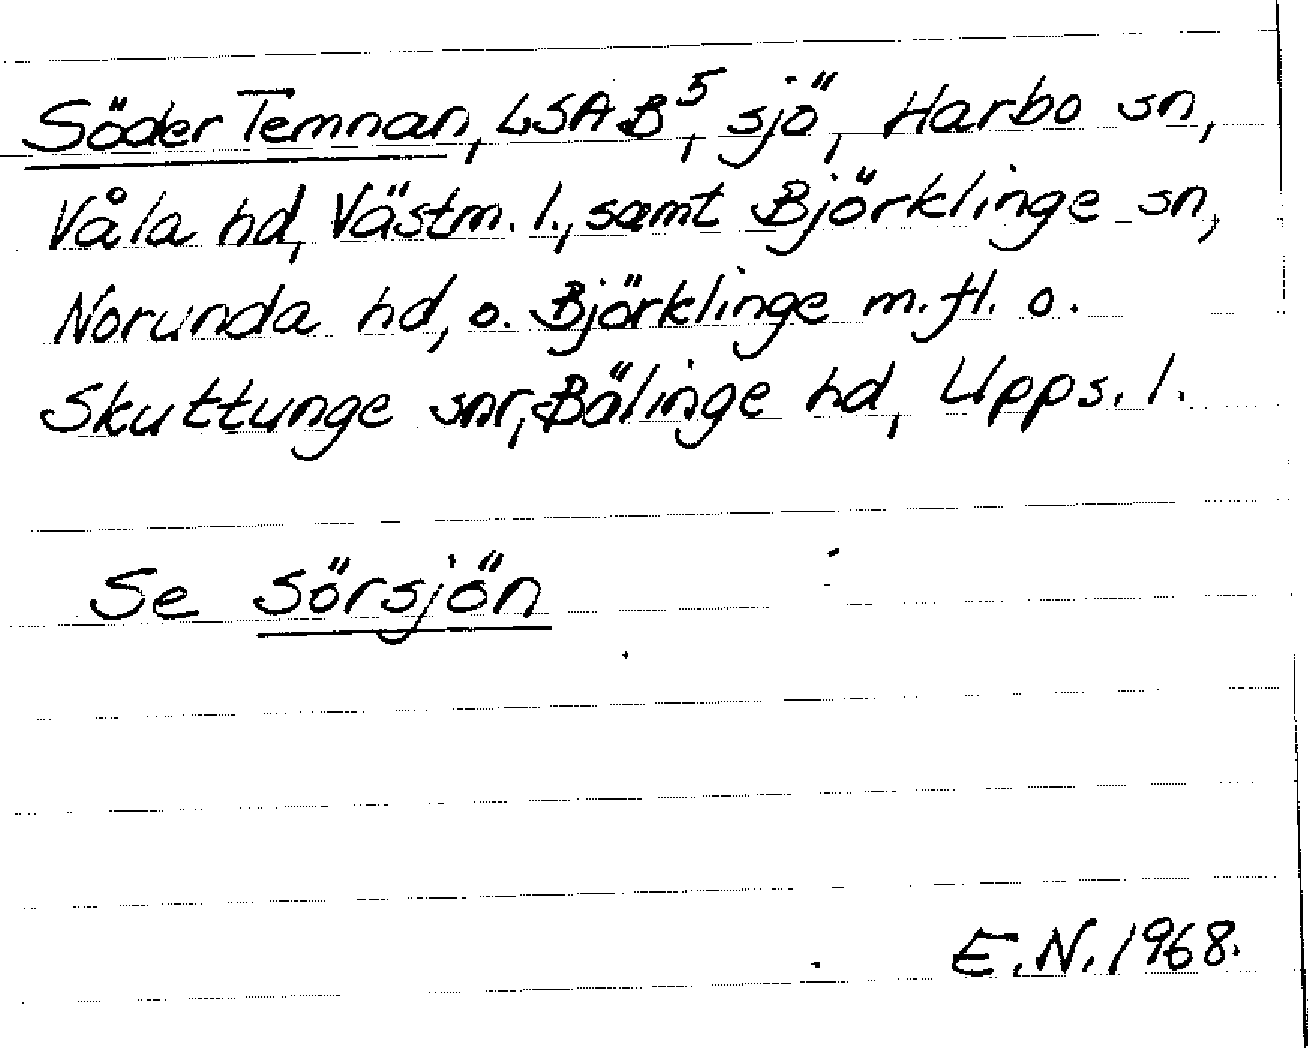 Söder Temnan, LSA B⁵, sjö, Harbo sn,
Våla hd, Västm. l., samt Björklinge sn,
Norunda hd, o. Björklinge m.fl. o.
Skuttunge snr, Bälinge hd, Upps. l.
Se Sörsjön
E.N. 1968.